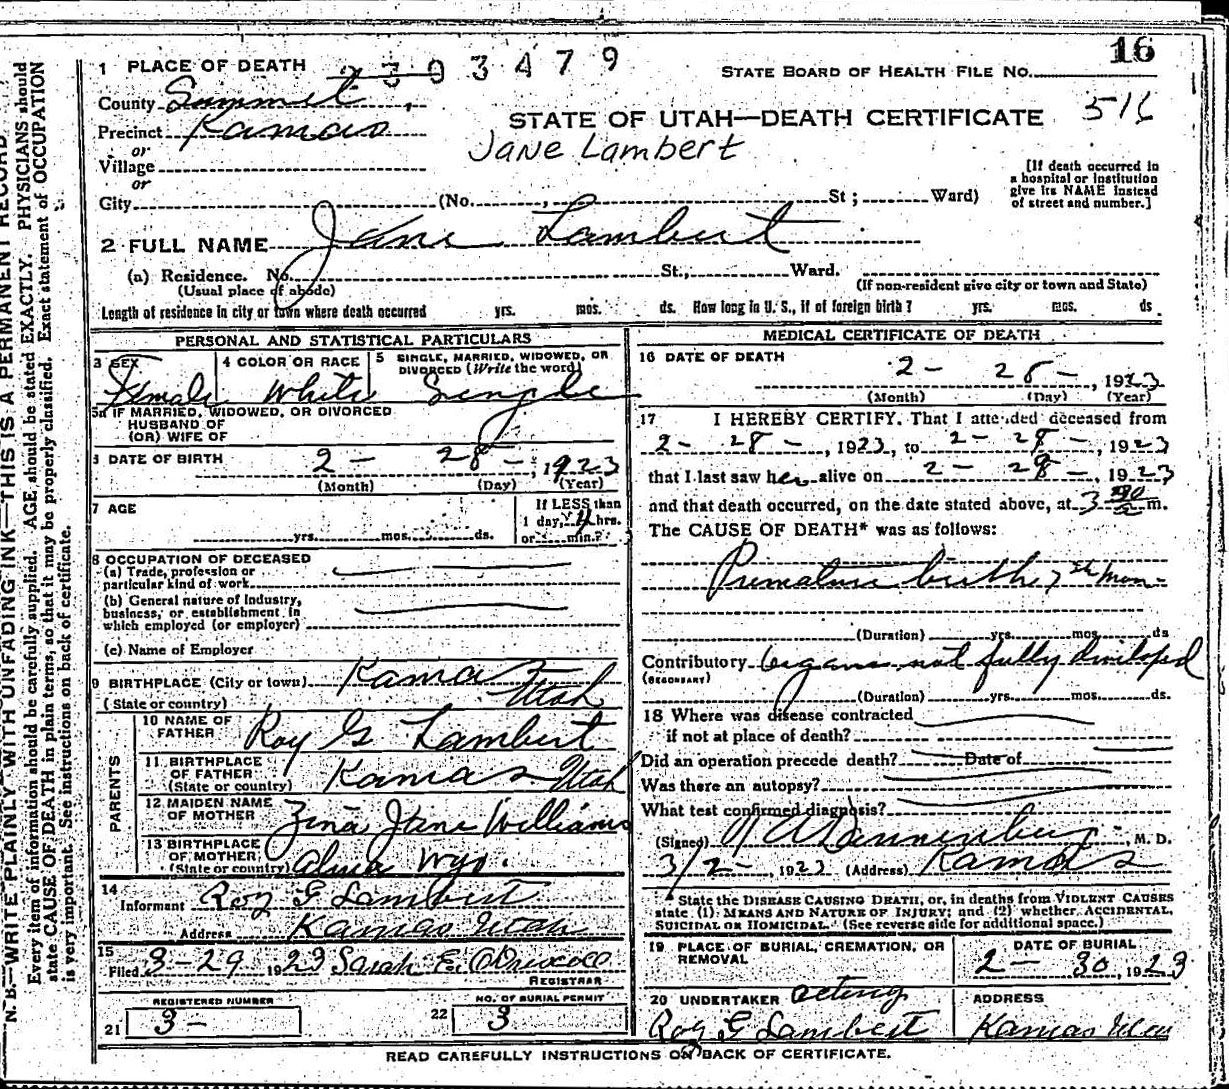 16
2303479
1 PLACE OF DEATH
STATE BOARD OF HEALTH FILE No.
County Summit
Precinct Kamas
STATE OF UTAH—DEATH CERTIFICATE 516
Jane Lambert
or
Village
or
City (No. , St ; Ward)
[If death occurred in
a hospital or institution
give its NAME instead
of street and number.]
2 FULL NAME Jane Lambert
(a) Residence. No. St., Ward.
(Usual place of abode)
(If non-resident give city or town and State)
Length of residence in city or town where death occurred yrs. mos. ds. How long in U. S., if of foreign birth? yrs. mos. ds
PERSONAL AND STATISTICAL PARTICULARS
3 SEX 4 COLOR OR RACE 5 SINGLE, MARRIED, WIDOWED, OR
DIVORCED (Write the word)
Female White Single
5a IF MARRIED, WIDOWED, OR DIVORCED
HUSBAND OF
(OR) WIFE OF
DATE OF BIRTH 2 - 28 -, 1923
(Month) (Day) (Year)
7 AGE
If LESS than
1 day, 4 hrs.
or min.?
yrs. mos. ds.
8 OCCUPATION OF DECEASED
(a) Trade, profession or
particular kind of work
(b) General nature of Industry,
business, or establishment in
which employed (or employer)
(c) Name of Employer
9 BIRTHPLACE (City or town) Kamas
(State or country) Utah
PARENTS
10 NAME OF
FATHER Roy G Lambert
11 BIRTHPLACE
OF FATHER
(State or country) Kamas Utah
12 MAIDEN NAME
OF MOTHER Zina Jane Williams
13 BIRTHPLACE
OF MOTHER
(State or country) Wyo.
14
Informant Roy G Lambert
Address Kamas Utah
15
Filed 3-29 1923 Sarah E. O'Driscoll
REGISTRAR
REGISTERED NUMBER
21 3-
NO. OF BURIAL PERMIT
22 3
MEDICAL CERTIFICATE OF DEATH
16 DATE OF DEATH
2 - 28 -, 1923
(Month) (Day) (Year)
17 I HEREBY CERTIFY. That I attended deceased from
2 - 28 -, 1923, to 2 - 28 -, 1923
that I last saw her alive on 2 - 28 -, 1923
and that death occurred, on the date stated above, at 3 a m.
The CAUSE OF DEATH* was as follows:
Premature birth 7 mon-
(Duration) yrs. mos. ds
Contributory organs not fully developed
(SECONDARY)
(Duration) yrs. mos. ds.
18 Where was disease contracted
if not at place of death?
Did an operation precede death? Date of
Was there an autopsy?
What test confirmed diagnosis?
(Signed) M. D.
3/2-, 1923 (Address) Kamas
* State the DISEASE CAUSING DEATH, or, in deaths from VIOLENT CAUSES
state (1) MEANS AND NATURE OF INJURY; and (2) whether ACCIDENTAL,
SUICIDAL OR HOMICIDAL. (See reverse side for additional space.)
19 PLACE OF BURIAL, CREMATION, OR
REMOVAL
DATE OF BURIAL
2 - 30, 1923
20 UNDERTAKER acting
Roy G Lambert
ADDRESS
Kamas Utah
READ CAREFULLY INSTRUCTIONS ON BACK OF CERTIFICATE.
N. B.—WRITE PLAINLY WITH UNFADING INK—THIS IS A PERMANENT RECORD
Every item of information should be carefully supplied. AGE should be stated EXACTLY. PHYSICIANS should
state CAUSE OF DEATH in plain terms, so that it may be properly classified. Exact statement of OCCUPATION
is very important. See instructions on back of certificate.